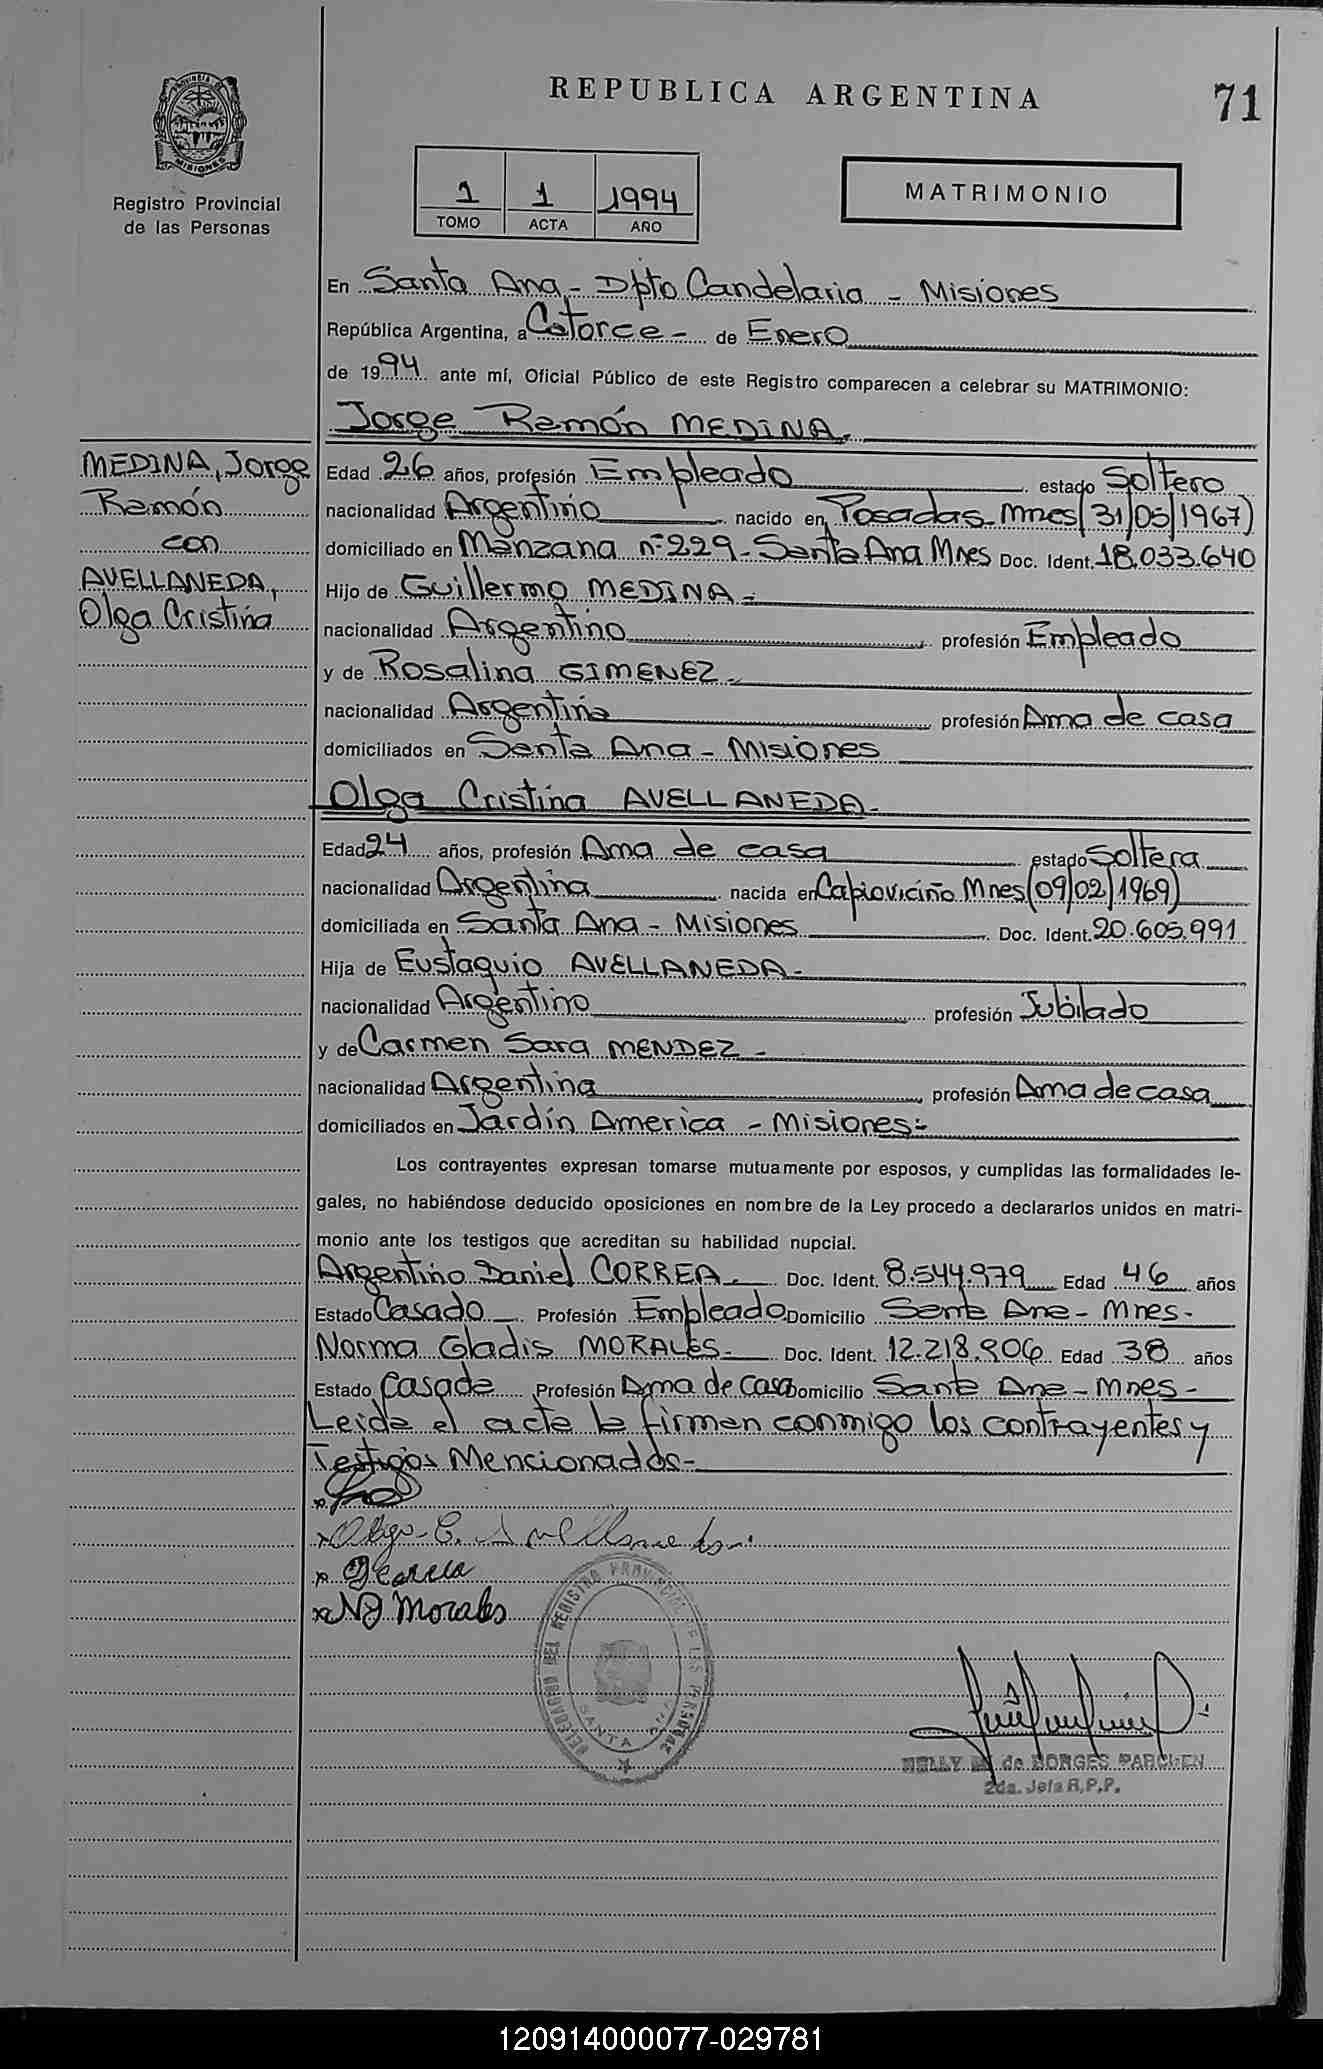 REPUBLICA ARGENTINA
71
PROVINCIA DE
MISIONES
Registro Provincial
de las Personas
1 1 1994
TOMO ACTA AÑO
MATRIMONIO
En Santa Ana - Dpto Candelaria - Misiones
República Argentina, a Catorce - de Enero
de 1994 ante mí, Oficial Público de este Registro comparecen a celebrar su MATRIMONIO:
Jorge Ramón MEDINA.
MEDINA, Jorge
Ramón
con
AVELLANEDA,
Olga Cristina
Edad 26 años, profesión Empleado estado Soltero
nacionalidad Argentino nacido en Posadas - Mnes (31/05/1967)
domiciliado en Manzana nº 229 - Santa Ana Mnes Doc. Ident. 18.033.640
Hijo de Guillermo MEDINA -
nacionalidad Argentino profesión Empleado
y de Rosalina GIMENEZ -
nacionalidad Argentina profesión Ama de casa
domiciliados en Santa Ana - Misiones
Olga Cristina AVELLANEDA -
Edad 24 años, profesión Ama de casa estado Soltera
nacionalidad Argentina nacida en Capioviciño Mnes (09/02/1969)
domiciliada en Santa Ana - Misiones Doc. Ident. 20.605.991
Hija de Eustaquio AVELLANEDA -
nacionalidad Argentino profesión Jubilado
y de Carmen Sara MENDEZ -
nacionalidad Argentina profesión Ama de casa
domiciliados en Jardín America - Misiones -
Los contrayentes expresan tomarse mutuamente por esposos, y cumplidas las formalidades le-
gales, no habiéndose deducido oposiciones en nombre de la Ley procedo a declararlos unidos en matri-
monio ante los testigos que acreditan su habilidad nupcial.
Argentino Daniel CORREA. Doc. Ident. 8.544.979 Edad 46 años
Estado Casado Profesión Empleado Domicilio Santa Ana - Mnes -
Norma Gladis MORALES - Doc. Ident. 12.218.906 Edad 38 años
Estado Casada Profesión Ama de Casa Domicilio Santa Ana - Mnes -
Leida el acta la firman conmigo los contrayentes y
Testigos Mencionados -
Olga C. Avellaneda
Morales
DELEGACION DEL REGISTRO PROVINCIAL DE LAS PERSONAS
SANTA ANA
NELLY de BORGES PARCHEN
2da. Jefa R.P.P.
120914000077-029781